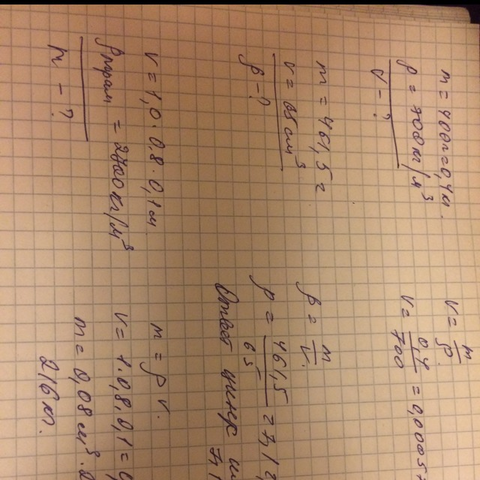 m = 400г = 0,4 кг.
ρ = 700 кг/м³
V - ?
V = m/ρ
V = 0,4/700 = 0,00057
m = 461,5 г
V = 65 см³
ρ - ?
ρ = m/V
ρ = 461,5/65 = 7,1 г
Ответ цинк
7,1
V = 1,0 · 0,8 · 0,1 м
ρ мрам = 2700 кг/м³
m - ?
m = ρ V.
V = 1 · 0,8 · 0,1 = 0,
m = 0,08 м³ · 2
216 кг.